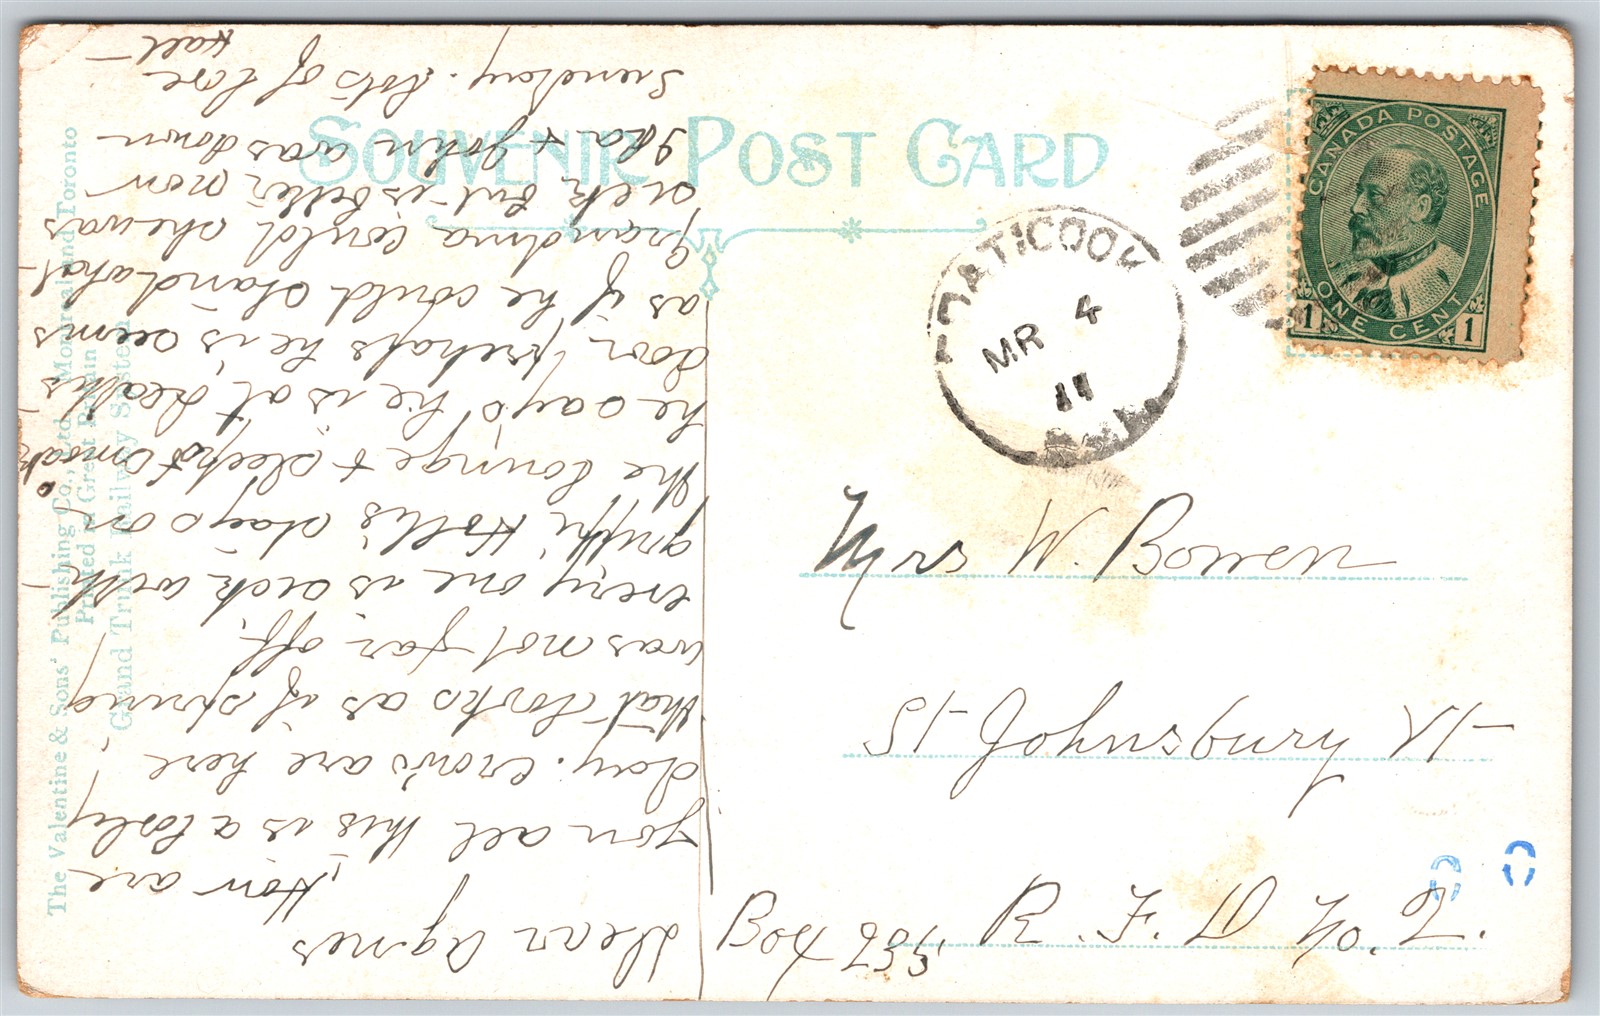 SOUVENIR POST CARD
CANADA POSTAGE
ONE CENT
1 1
COATICOOK
MR 4
11
Mrs W. Bowen
St Johnsbury Vt
R. F. D No. 2.
Box
The Valentine & Sons' Publishing Co., Ltd. Montreal and Toronto
Printed in Great Britain
Grand Trunk Railway System
Dear Agnes
How are
you all this is a lovly
day. crows are here
that looks as if spring
was not far off.
every one is sick with
gripp. Hollis stays on
the lounge &
he says he is at deaths
door, prehaps he is seems
as if he could stand what
Grandma could she was
sick but is better now
Ida & John was down
Sunday. lots of love